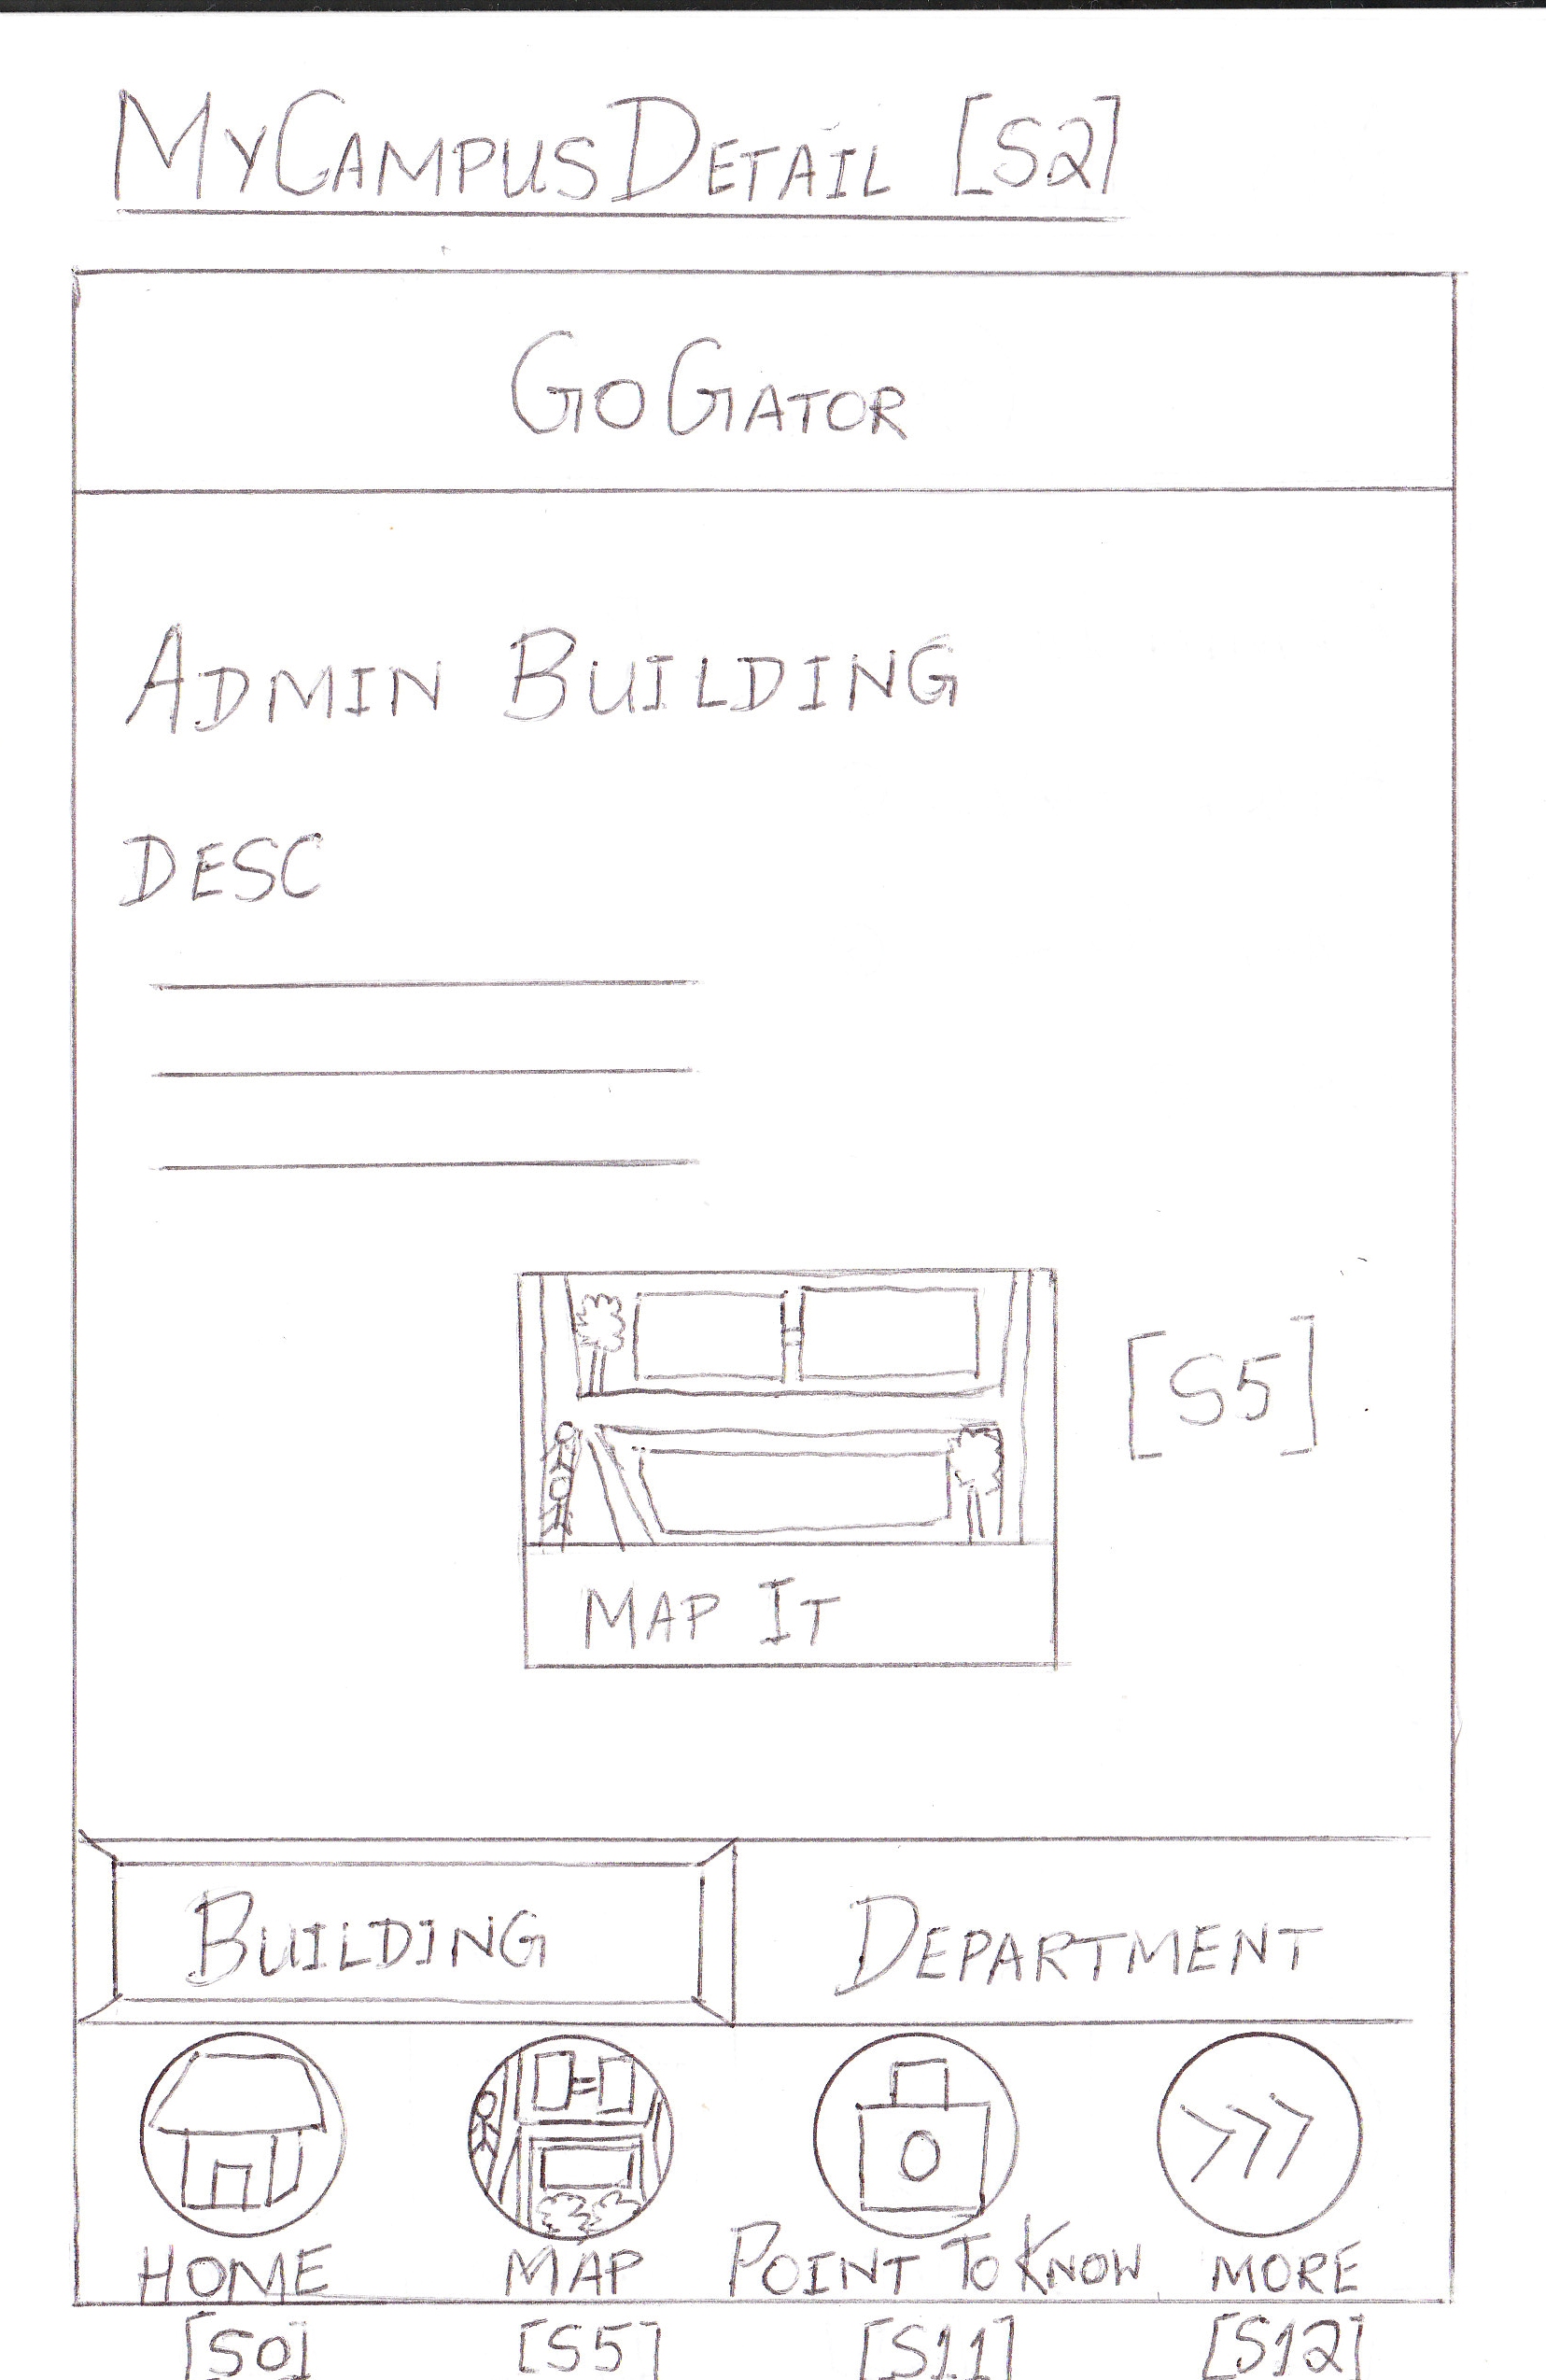 MyCampusDetail [S2]
GoGator
Admin Building
Desc
[S5]
Map It
Building Department
Home Map Point To Know More
[S0] [S5] [S11] [S12]